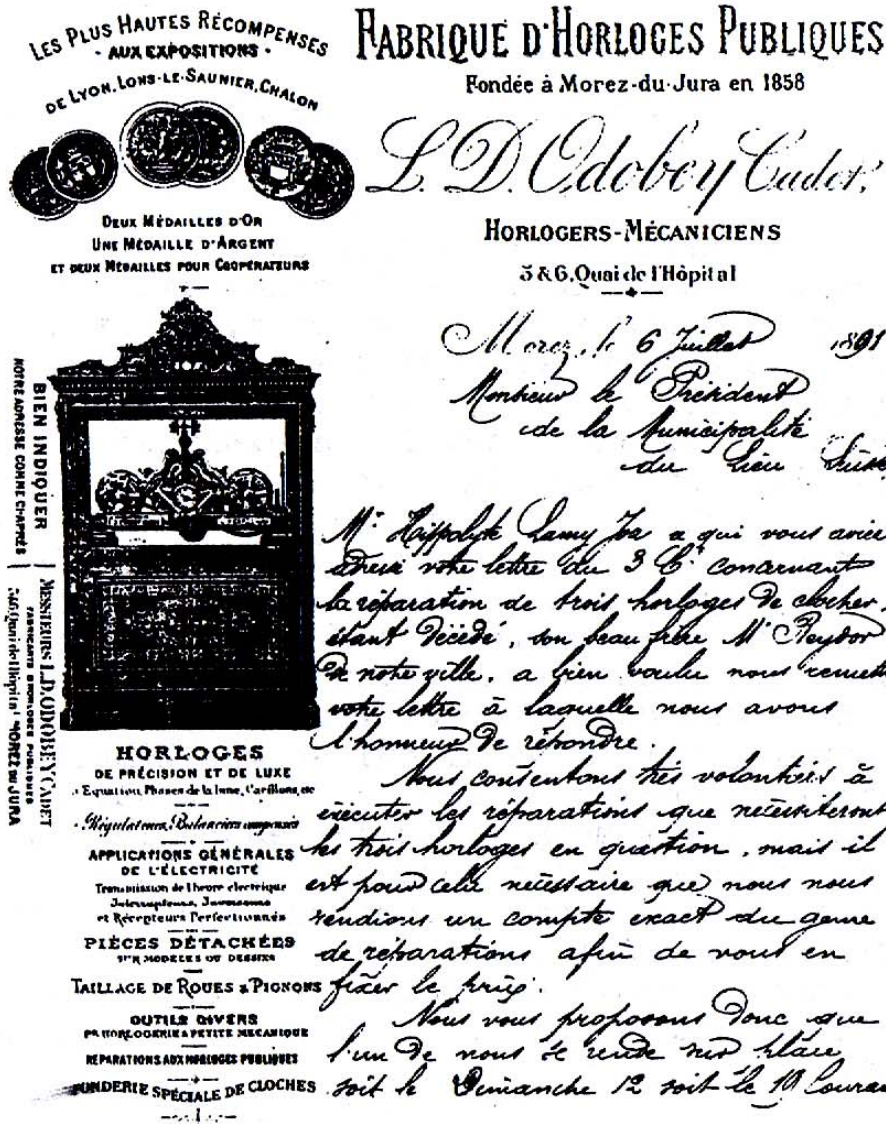 LES PLUS HAUTES RÉCOMPENSES
• AUX EXPOSITIONS •
DE LYON, LONS-LE-SAUNIER, CHALON
DEUX MÉDAILLES D'OR
UNE MÉDAILLE D'ARGENT
ET DEUX MÉDAILLES POUR COOPÉRATEURS
FABRIQUE D'HORLOGES PUBLIQUES
Fondée à Morez-du-Jura en 1858
L. D. Odobey Cadet,
HORLOGERS-MÉCANICIENS
5 & 6, Quai de l'Hôpital
BIEN INDIQUER
NOTRE ADRESSE COMME CI-APRÈS
MESSIEURS L.D. ODOBEY CADET
FABRICANTS D'HORLOGES PUBLIQUES
5&6 Quai de l'Hôpital MOREZ DU JURA
HORLOGES
DE PRÉCISION ET DE LUXE
Equation, Phases de la lune, Carillons, etc
Régulateurs, Balanciers compensés
APPLICATIONS GÉNÉRALES
DE L'ÉLECTRICITÉ
Transmission de l'heure électrique
et Récepteurs Perfectionnés
PIÈCES DÉTACHÉES
SUR MODÈLES OU DESSINS
TAILLAGE DE ROUES & PIGNONS
OUTILS DIVERS
PR HORLOGERIE & PETITE MÉCANIQUE
RÉPARATIONS AUX HORLOGES PUBLIQUES
FONDERIE SPÉCIALE DE CLOCHES
Morez, le 6 Juillet 1891
Monsieur le Président
de la Municipalité
du Lieu Suisse
Mr Hippolyte Lamy Joz a qui vous aviez
adressé votre lettre du 3 Ct concernant
la réparation de trois horloges de clocher,
étant décédé, son beau frère Mr Reydor
de notre ville, a bien voulu nous remett
votre lettre à laquelle nous avons
l'honneur de répondre.
Nous consentons très volontiers à
exécuter les réparations que nécessiteront
les trois horloges en question, mais il
est pour cela nécessaire que nous nous
rendions un compte exact du genre
de réparations afin de vous en
fixer le prix.
Nous vous proposons donc que
l'un de nous se rende sur place
soit le Dimanche 12 soit le 19 Couran